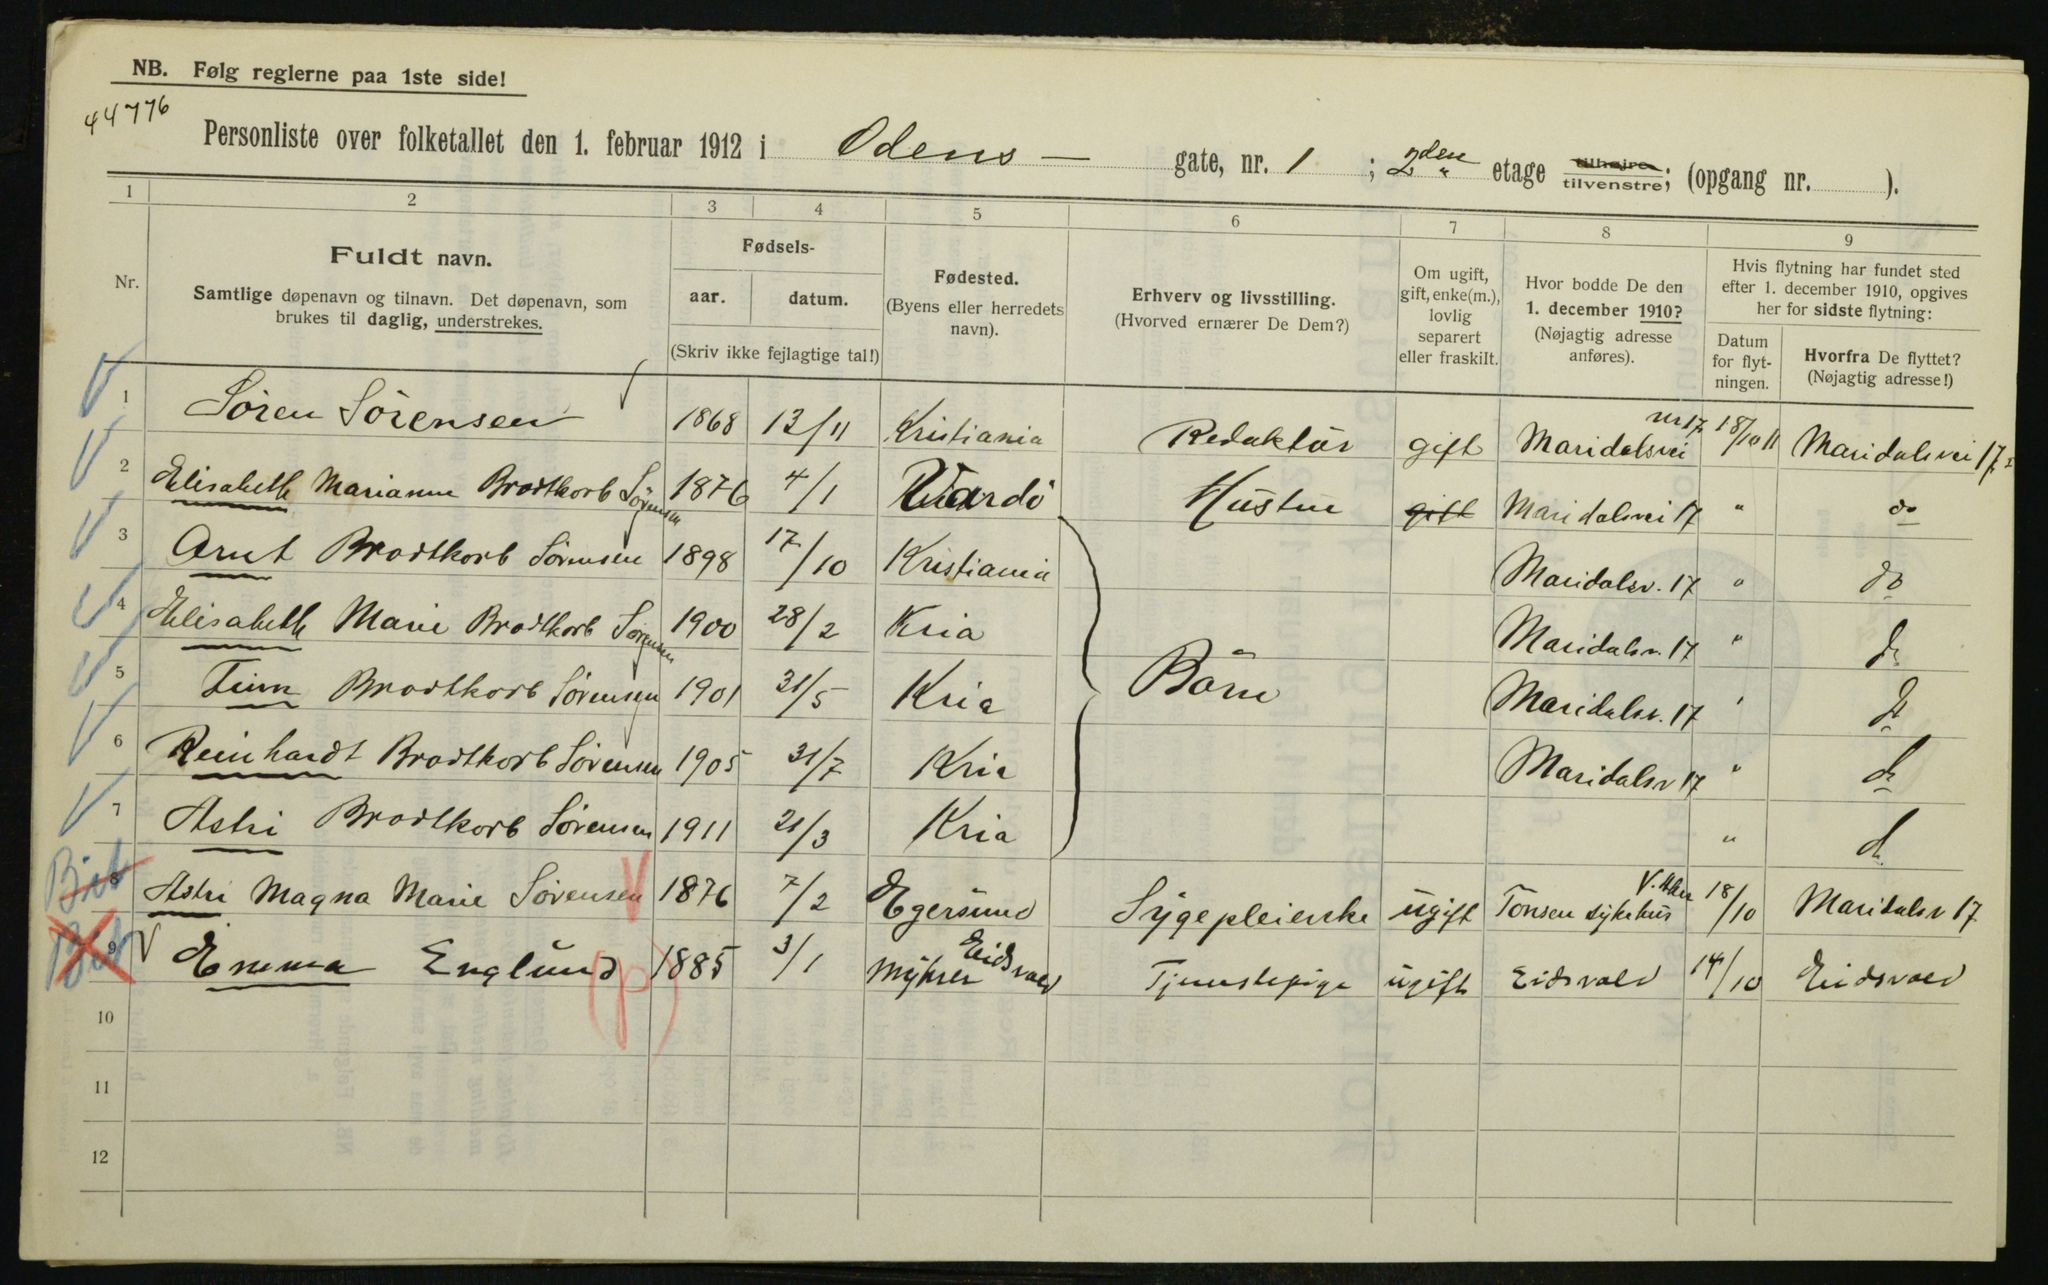 NB. Følg reglerne paa 1ste side!
44776
Personliste over folketallet den 1. februar 1912 i Odens — gate, nr. 1 ; 2den etage tilhøjre tilvenstre; (opgang nr. ).
1 2 3 4 5 6 7 8 9
Nr.
Fuldt navn.
Samtlige døpenavn og tilnavn. Det døpenavn, som
brukes til daglig, understrekes.
Fødsels-
aar. datum.
(Skriv ikke fejlagtige tal!)
Fødested.
(Byens eller herredets
navn).
Erhverv og livsstilling.
(Hvorved ernærer De Dem?)
Om ugift,
gift, enke(m.),
lovlig
separert
eller fraskilt.
Hvor bodde De den
1. december 1910?
(Nøjagtig adresse
anføres).
Hvis flytning har fundet sted
efter 1. december 1910, opgives
her for sidste flytning:
Datum
for flyt-
ningen.
Hvorfra De flyttet?
(Nøjagtig adresse!)
1 Sören Sörensen 1868 13/11 Kristiania Redaktür gift Maridalsvei nr 17 18/10 11 Maridalsvei 17
2 Elisabeth Marianne Brodtkorb Sörensen 1876 4/1 Vardö Hustru gift Maridalsvei 17 " do
3 Arnt Brodtkorb Sörensen 1898 17/10 Kristiania Maridalsv. 17 " do
4 Elisabeth Marie Brodtkorb Sörensen 1900 28/2 Kria Maridalsv. 17 " do
5 Finn Brodtkorb Sörensen 1901 31/5 Kria Börn Maridalsv. 17 " do
6 Reinhardt Brodtkorb Sörensen 1905 31/7 Kria Maridalsv 17 " do
7 Astri Brodtkorb Sörensen 1911 21/3 Kria " do
8 Astri Magna Marie Sörensen 1876 7/2 Egersund Sygepleierske ugift Tonsen sykehus V. Aker 18/10 Maridalsv 17
9 Emma Englund 1885 3/1 Myhrer Eidsvold Tjenestepige ugift Eidsvold 14/10 Eidsvold
10
11
12